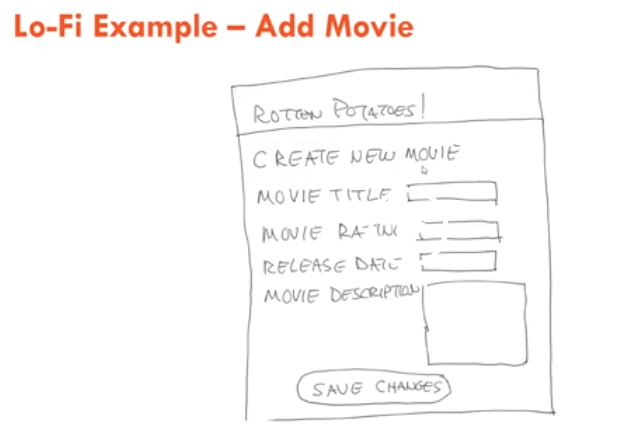 Lo-Fi Example – Add Movie
ROTTEN POTATOES!
CREATE NEW MOVIE
MOVIE TITLE
MOVIE RATING
RELEASE DATE
MOVIE DESCRIPTION
SAVE CHANGES